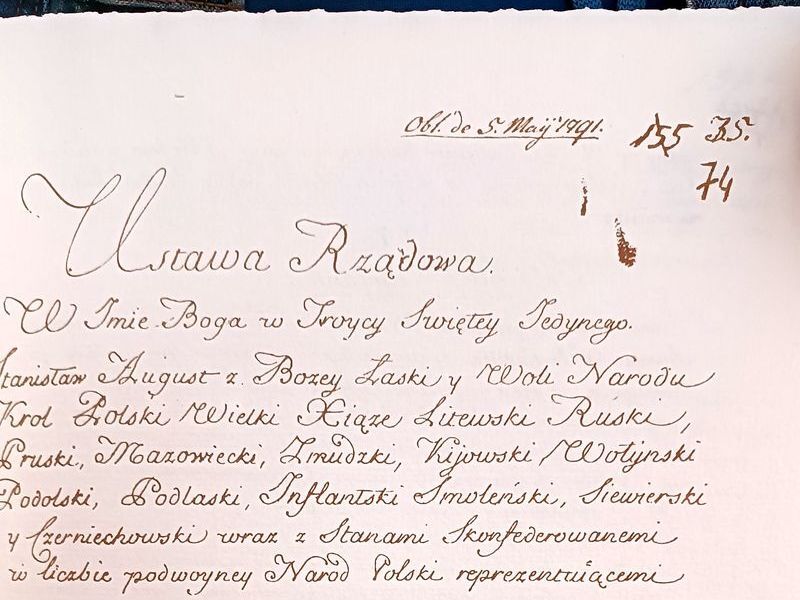 Obl. de 5. Maij 1791.
155 35.
74
Ustawa Rządowa.
W Imie Boga w Troycy Swiętey Jedynego.
Stanisław August z Bozey Łaski y Woli Narodu
Krol Polski Wielki Xiąze Litewski Ruski,
Pruski, Mazowiecki, Zmudzki, Kijowski, Wołynski
Podolski, Podlaski, Inflantski Smoleński, Siewierski
y Czerniechowski wraz z Stanami Skonfederowanemi
w liczbie podwoyney Naród Polski reprezentuiącemi